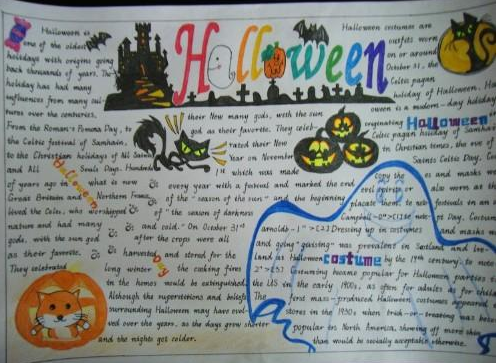 Halloween
Halloween is
one of the oldest
holidays with origins going
back thousands of years. The
holiday has had many
influences from many cul-
tures over the centuries.
From the Roman's Pomona Day, to
the Celtic festival of Samhain,
to the Christian holidays of All Saints
and All Souls Days. Hundreds
of years ago in what is now
Great Britain and Northern France,
lived the Celts, who worshipped
nature and had many
gods, with the sun god
as their favorite.
They celebrated
Halloween
Day
their New many gods, with the sun
god as their favorite. They celeb-
rated their New
Year on November
1st which was made
every year with a festival and marked the end
of the "season of the sun" and the beginning
of "the season of darkness
and cold." On October 31st
after the crops were all
harvested and stored for the
long winter the cooking fires
in the homes would be extinguished.
Although the superstitions and beliefs
surrounding Halloween may have evol-
ved over the years, as the days grow shorter
and the nights get colder.
Halloween costumes are
outfits worn
on or around
October 31, the
Celtic pagan
holiday of Halloween.
oween is a modern-day holiday
originating Halloween
Celtic pagan holiday of Samhain
in Christian times, the eve of
Saints Celtic Day.
copy the
evil spirits or
placate
Dressing up in costumes
and going "guising" was prevalent in Scotland and Ire-
land at Halloween costume by the 19th century
costuming became popular for Halloween parties
the US in the early 1900s, as often for adults as for child
The first mass-produced Halloween costumes appeared
stores in the 1930s when trick-or-treating was
popular in North America, showing off more skin
than would be socially acceptable otherwise.